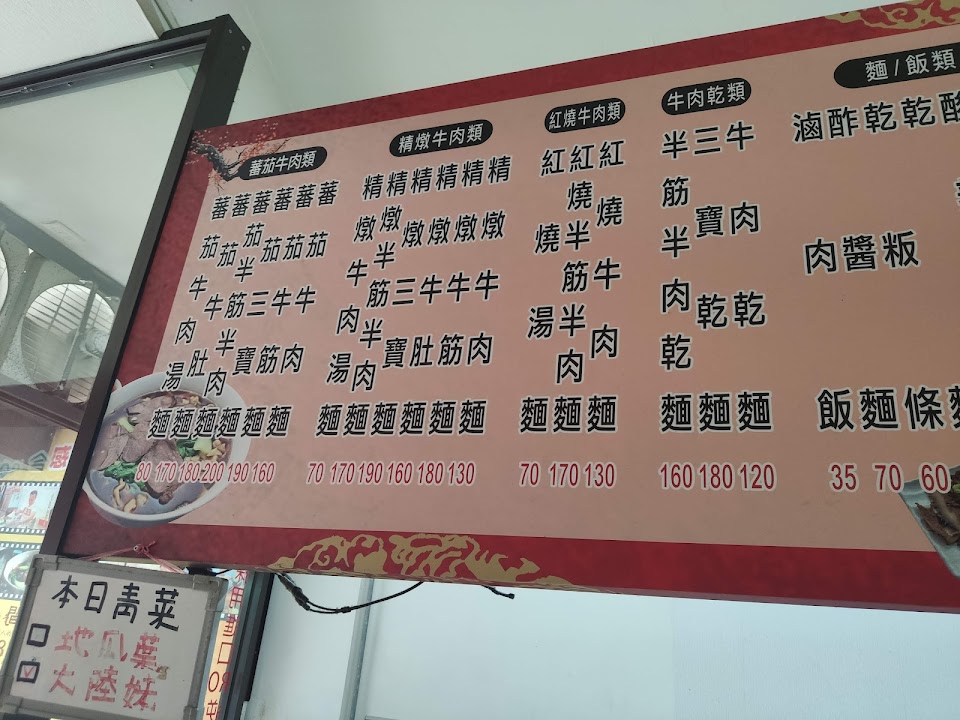 麵/飯類
乾粄條 60
酢醬麵 70
滷肉飯 35
牛肉乾類
牛肉乾麵 120
三寶乾麵 180
半筋半肉乾麵 160
紅燒牛肉類
紅燒牛肉麵 130
紅燒半筋半肉麵 170
紅燒湯麵 70
精燉牛肉類
精燉牛肉麵 130
精燉牛筋麵 180
精燉牛肚麵 160
精燉三寶麵 190
精燉半筋半肉麵 170
精燉牛肉湯麵 70
蕃茄牛肉類
蕃茄牛肉麵 160
蕃茄牛筋麵 190
蕃茄三寶麵 200
蕃茄半筋半肉麵 180
蕃茄牛肚麵 170
蕃茄牛肉湯麵 80
本日青菜
地瓜葉
大陸妹